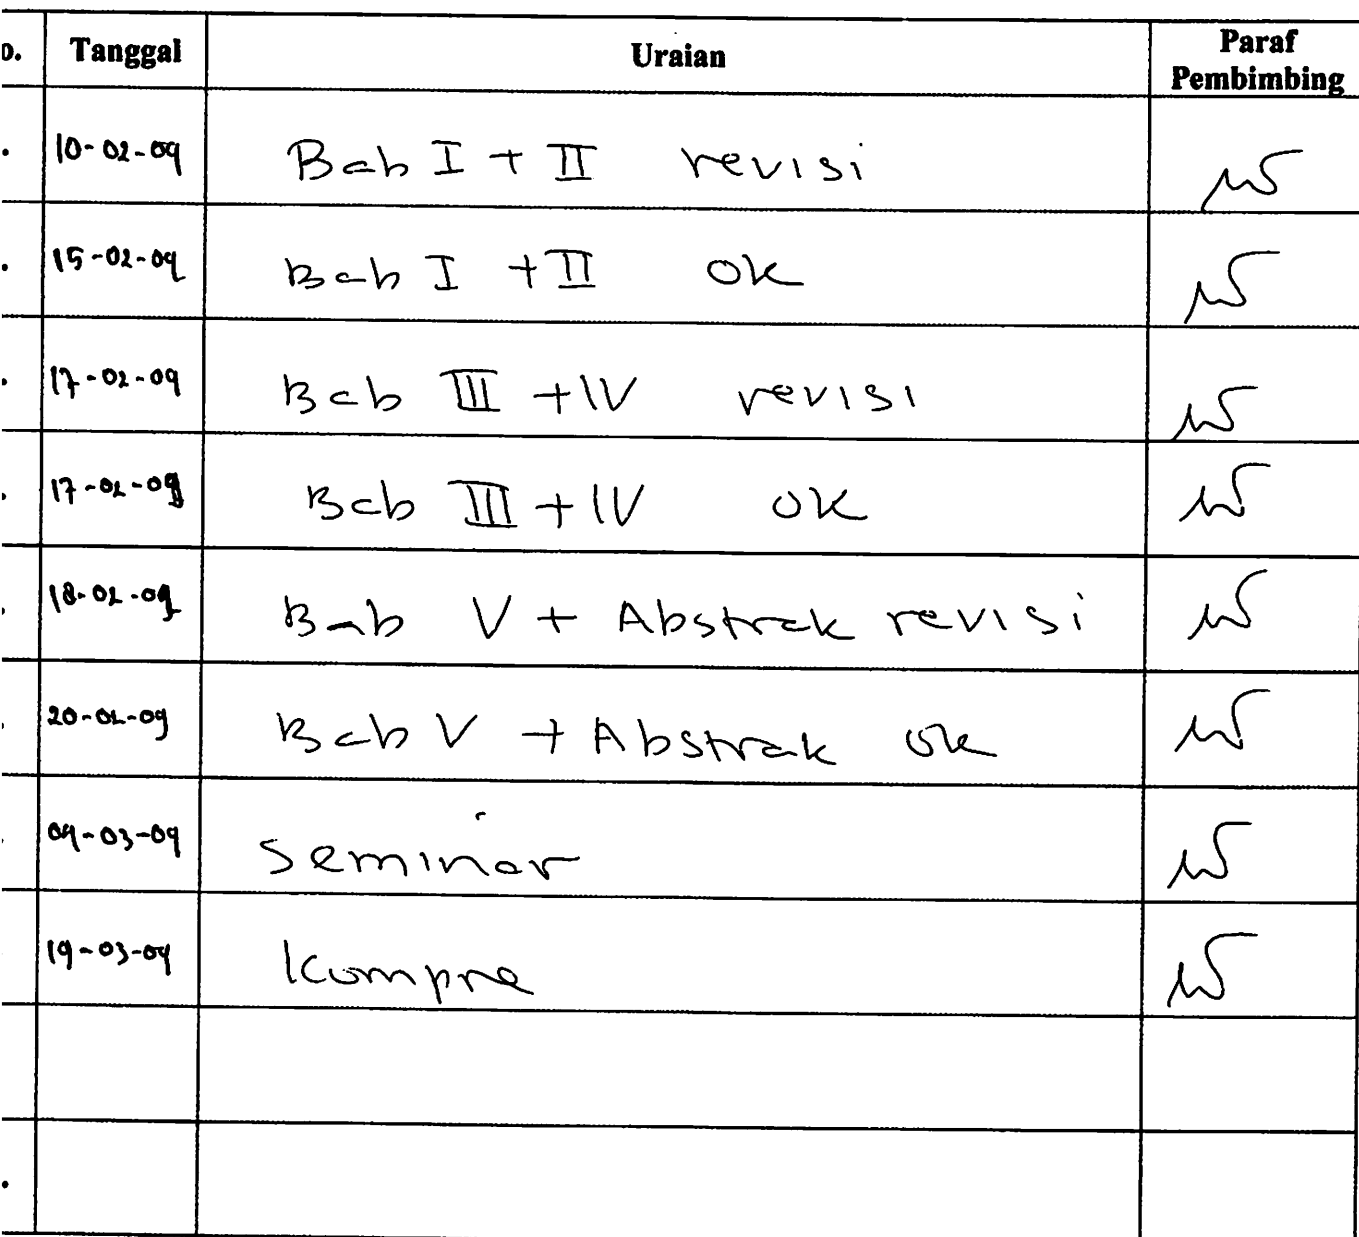 o. Tanggal Uraian Paraf Pembimbing
. 10-02-09 Bab I + II revisi
. 15-02-09 Bab I + II ok
. 17-02-09 Bab III + IV revisi
. 17-02-09 Bab III + IV ok
. 18-02-09 Bab V + Abstrak revisi
. 20-02-09 Bab V + Abstrak ok
. 04-03-09 Seminar
19-03-09 Kompre
.